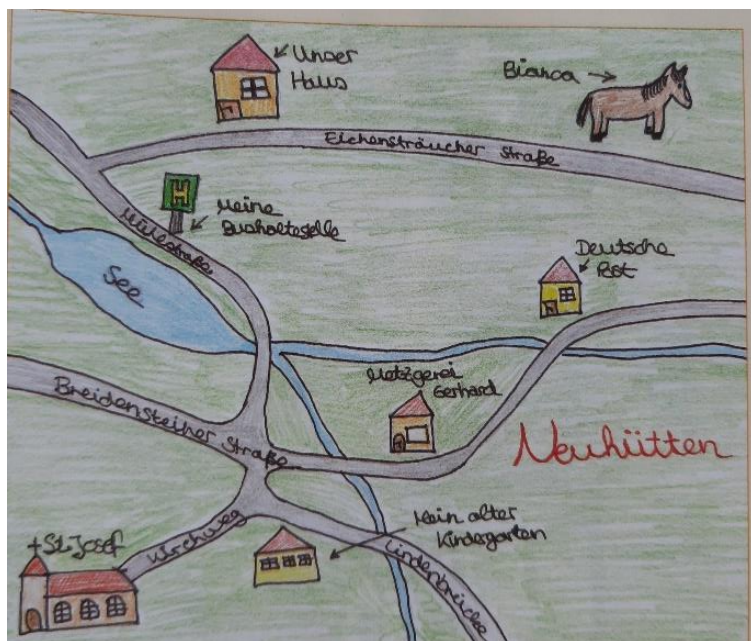 Unser
Haus
Bianca
Eichensträucher Straße
H
Meine
Bushaltestelle
Mühlstraße
See
Deutsche
Post
Metzgerei
Gerhard
Breidensteiner Straße
Neuhütten
+St. Josef
Kirchweg
Mein alter
Kindergarten
Lindenbrücke